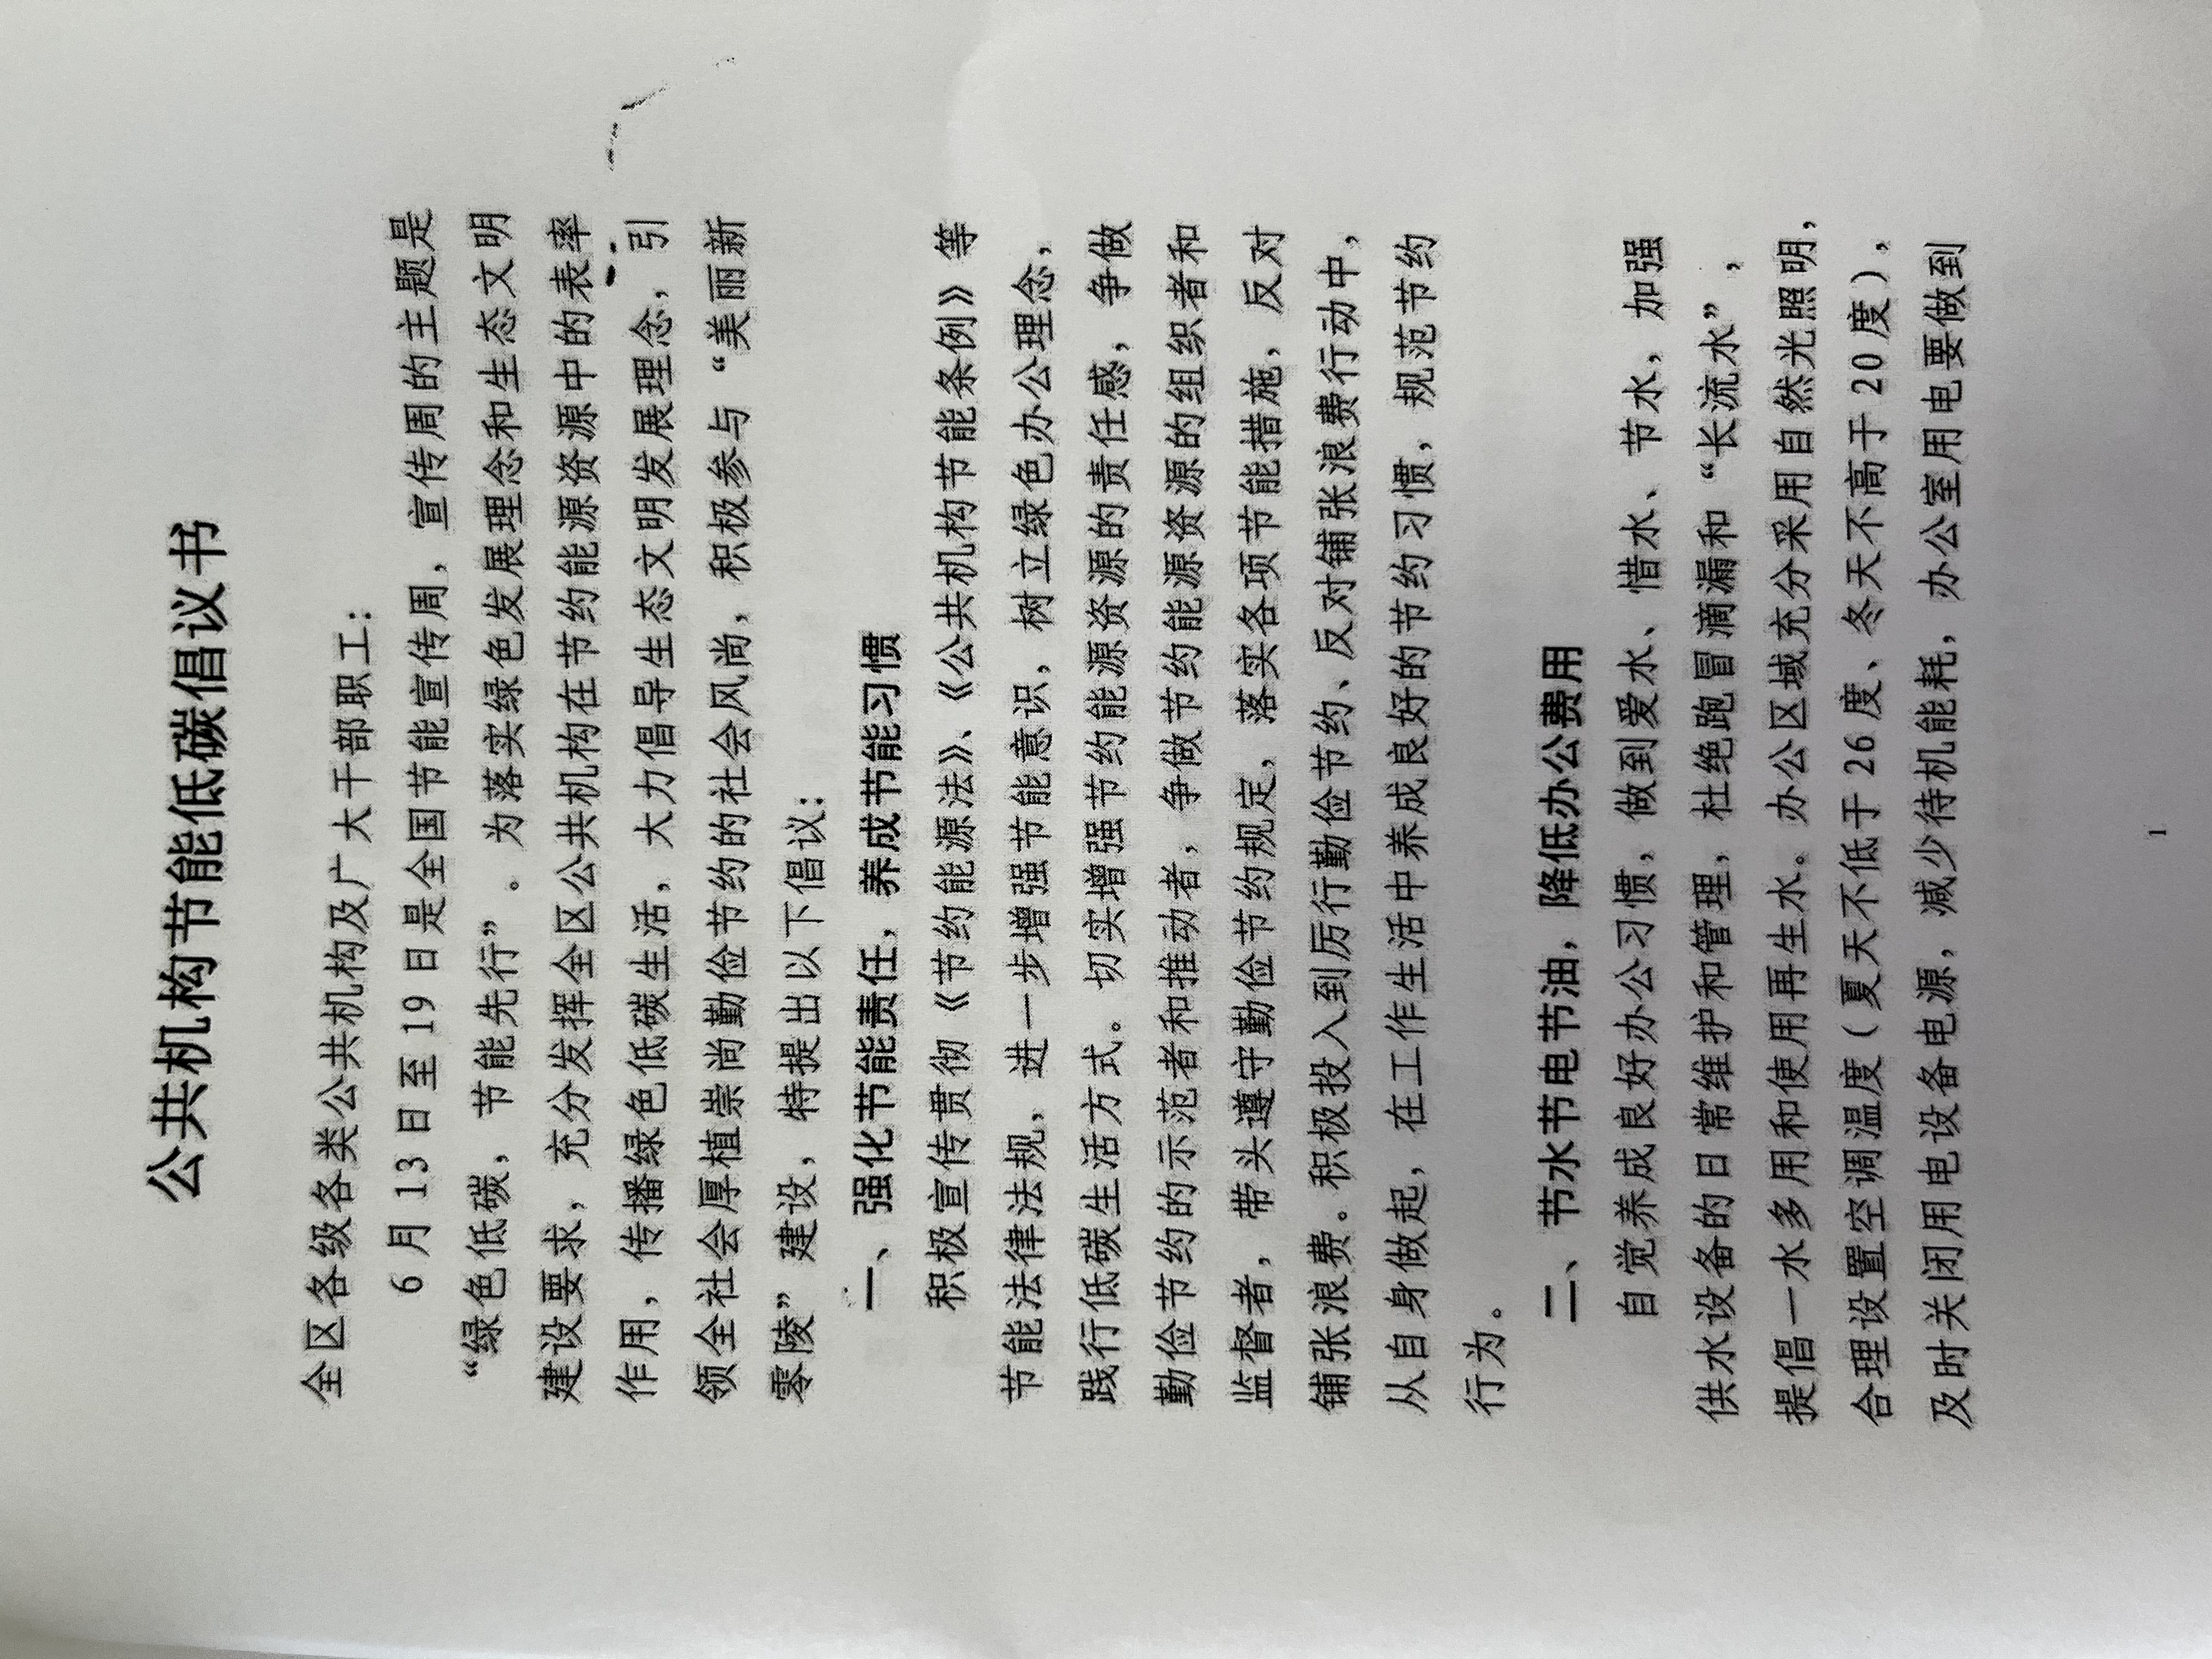 公共机构节能低碳倡议书
全区各级各类公共机构及广大干部职工：
6月13日至19日是全国节能宣传周，宣传周的主题是
“绿色低碳，节能先行”。为落实绿色发展理念和生态文明
建设要求，充分发挥全区公共机构在节约能源资源中的表率
作用，传播绿色低碳生活，大力倡导生态文明发展理念，引
领全社会厚植崇尚勤俭节约的社会风尚，积极参与“美丽新
零陵”建设，特提出以下倡议：
一、强化节能责任，养成节能习惯
积极宣传贯彻《节约能源法》、《公共机构节能条例》等
节能法律法规，进一步增强节能意识，树立绿色办公理念，
践行低碳生活方式。切实增强节约能源资源的责任感，争做
勤俭节约的示范者和推动者，争做节约能源资源的组织者和
监督者，带头遵守勤俭节约规定，落实各项节能措施，反对
铺张浪费。积极投入到厉行勤俭节约、反对铺张浪费行动中，
从自身做起，在工作生活中养成良好的节约习惯，规范节约
行为。
二、节水节电节油，降低办公费用
自觉养成良好办公习惯，做到爱水、惜水、节水，加强
供水设备的日常维护和管理，杜绝跑冒滴漏和“长流水”，
提倡一水多用和使用再生水。办公区域充分采用自然光照明，
合理设置空调温度（夏天不低于26度、冬天不高于20度），
及时关闭用电设备电源，减少待机能耗，办公室用电要做到
1